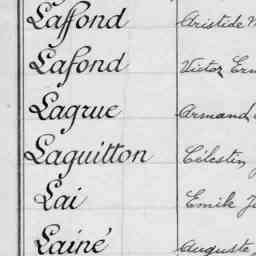 Laffond Aristide
Lafond Victor
Lagrue Armand
Laguitton Célestin
Lai Emile
Lainé Auguste